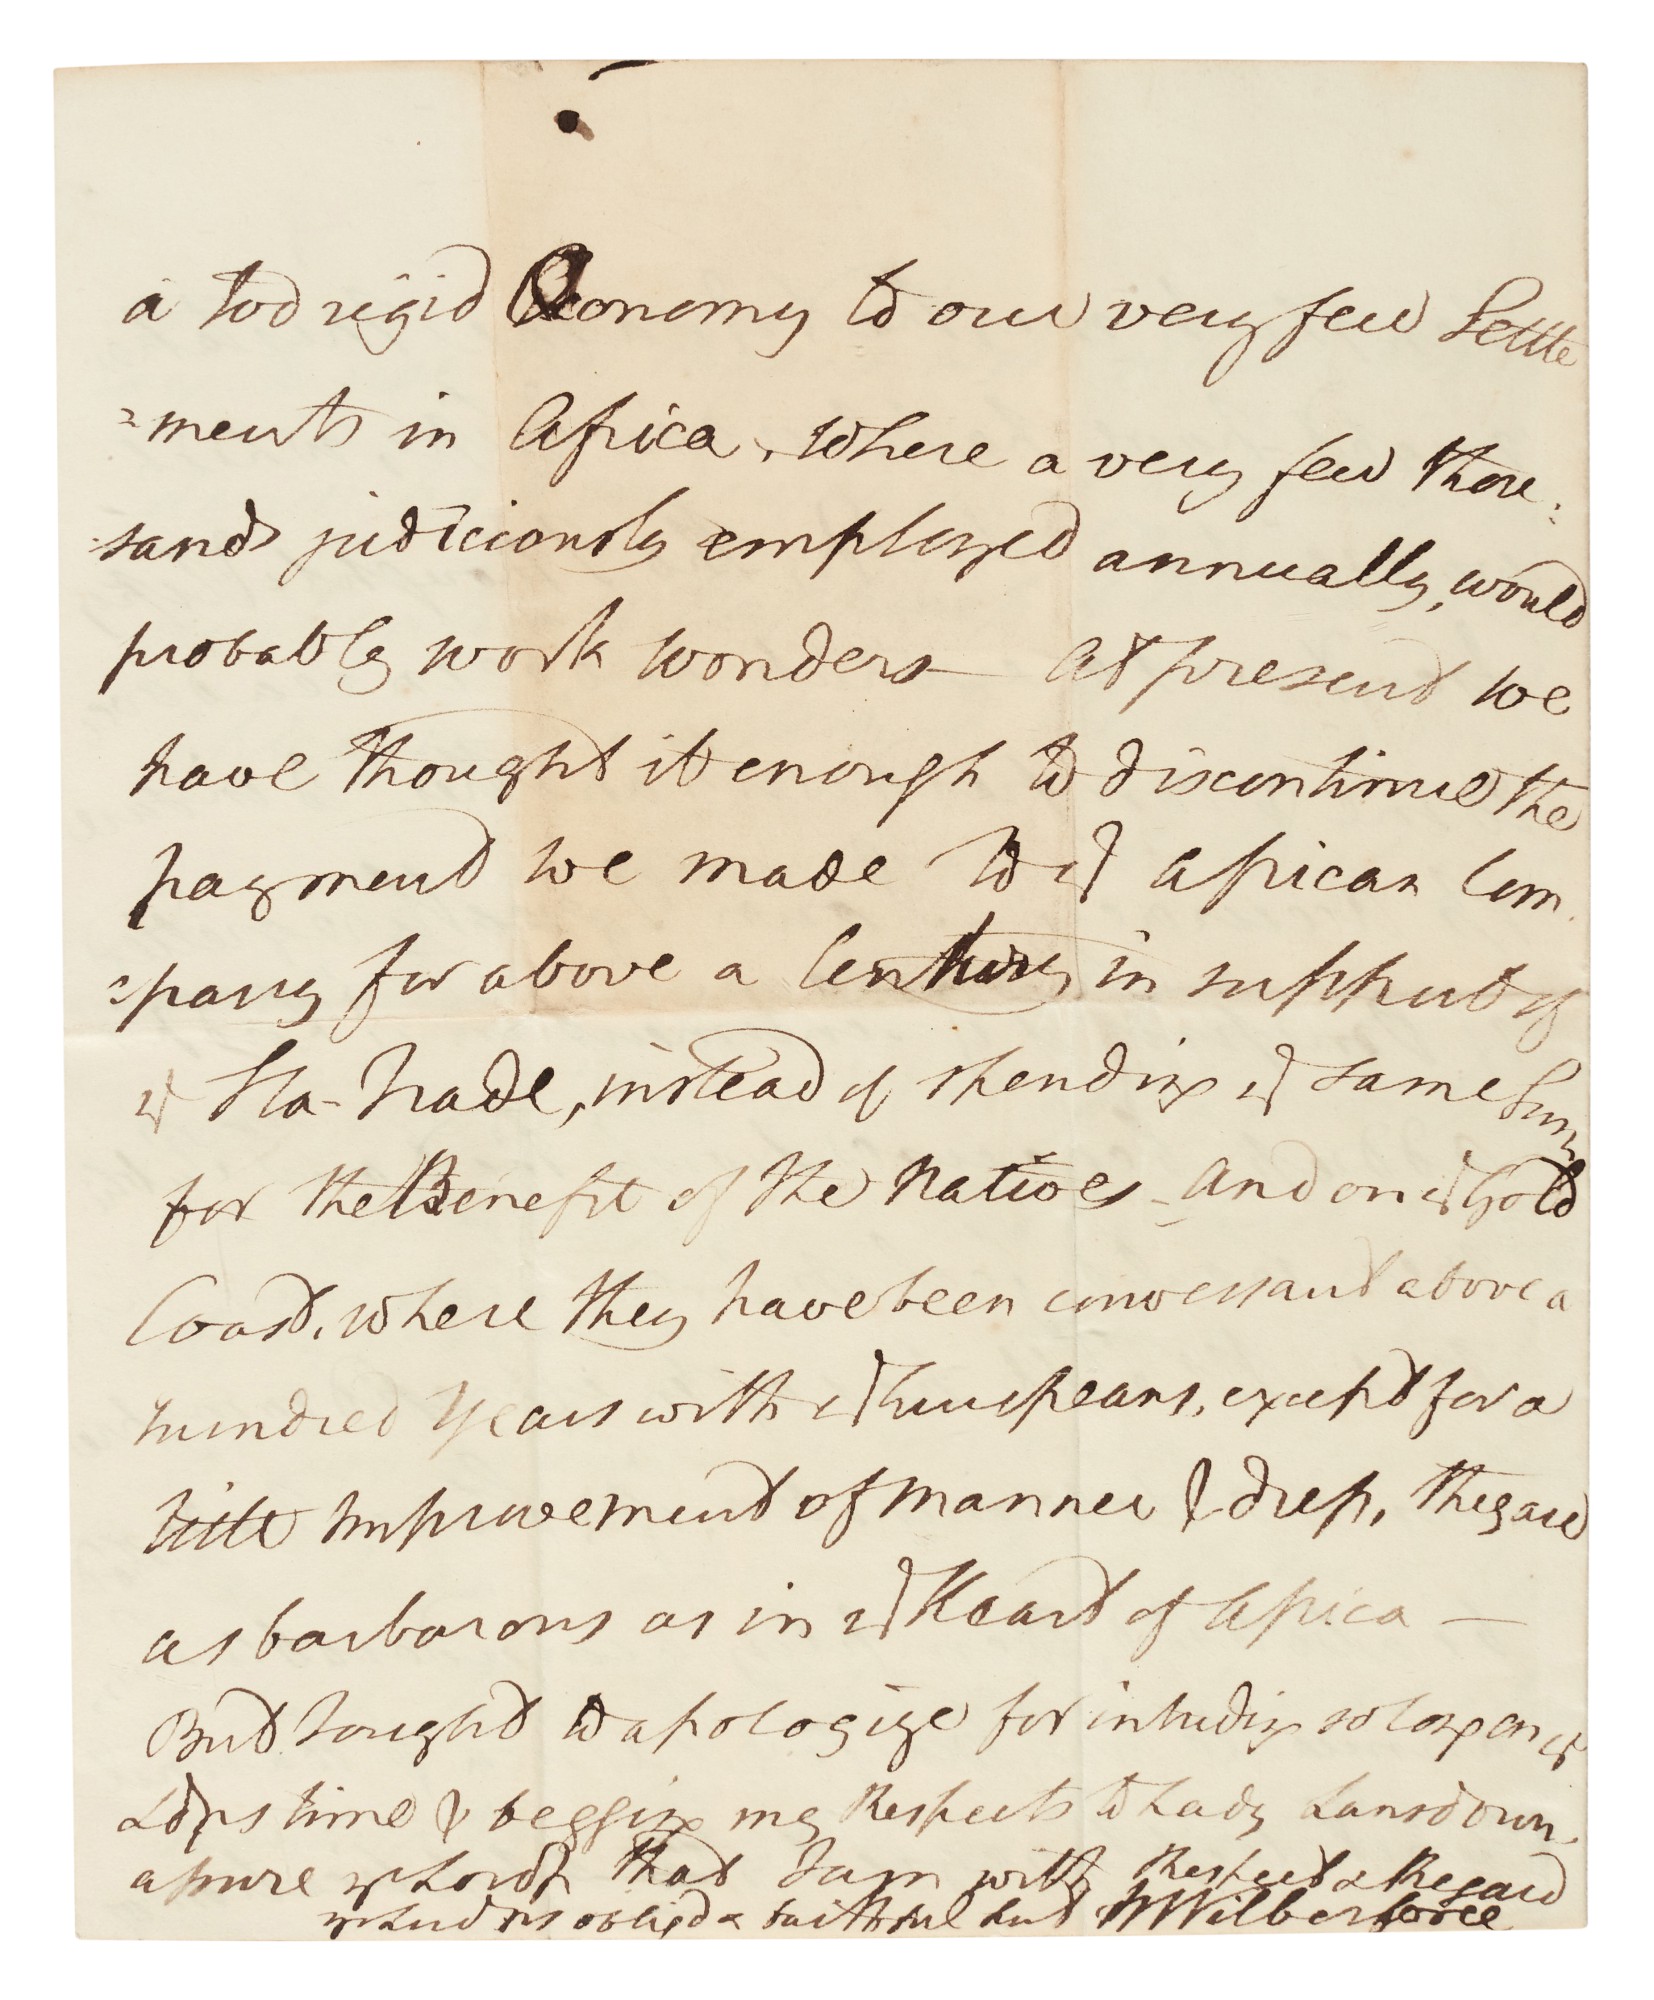 a too rigid Economy to our very few Settle
=ments in Africa, where a very few thou:
sands judiciously employed annually, would
probably work wonders — At present we
have thought it enough to discontinue the
payment we made to ye African Com
=pany for above a Century in support of
ye Sla- Trade, instead of spending ye same Sum
for the Benefit of the Natives - And on ye Gold
Coast, where they have been conversant above a
hundred Years with ye Europeans, except for a
little Improvement of manner & dress, they are
as barbarous as in ye Heart of Africa —
But I ought to apologize for intruding so long on yr
Ldps time & begging my Respects to Lady Lansdown,
assure yr Lordp that I am with Respect & Regard
yr Ludps oblig'd & faithful Sert W Wilberforce